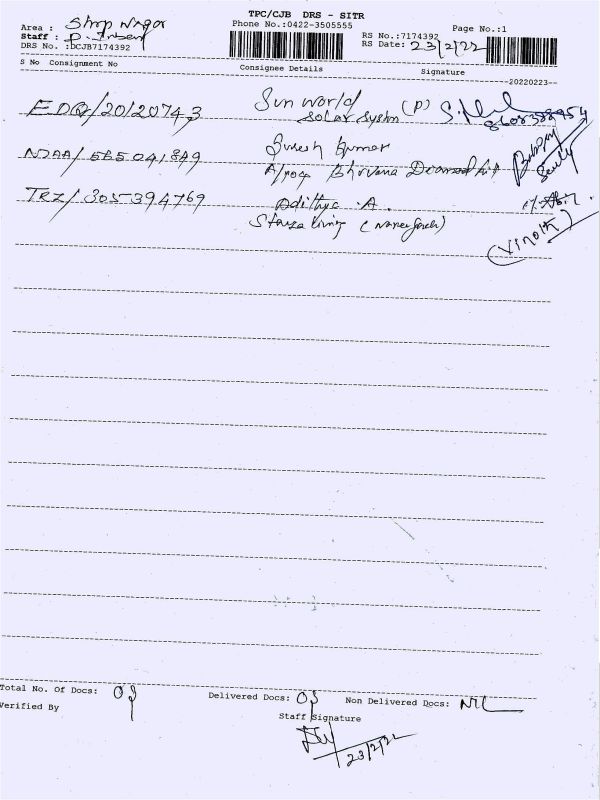 TPC/CJB DRS - SITR
Phone No.:0422-3505555
Page No.:1
Area : Nagar
Staff : P.
DRS No. :DCJB7174392
RS No.:7174392
RS Date: 23/2/22
S No Consignment No Consignee Details Signature
--20220223--
EDQ/20120743 Sun World (P)
Solar System
NDAA/585041849 Suresh Kumar
Bhuvana
TRZ/305394769 Adithya .A.
Stanza living
(VINOTH)
Total No. Of Docs: 03 Delivered Docs: 03 Non Delivered Docs: NIL
Verified By
Staff Signature
23/2/22